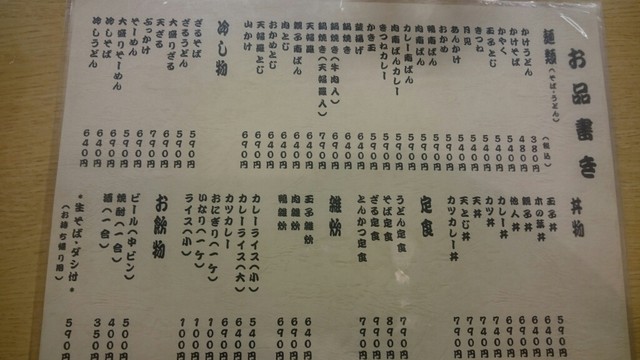 お品書き
麺類(そば・うどん)
(税込)
かけうどん 380円
かけそば 480円
かやく
玉子とじ
きつね
月見
あんかけ
おかめ
鴨南ばん
肉南ばん
カレー南ばん
肉南ばんカレー
きつねカレー
かき玉
釜揚げ
鍋焼き
鍋焼き(牛肉入)
鍋焼き(天婦羅入)
天婦羅
親子南ばん
肉とじ
おかめとじ
天婦羅とじ
山かけ
冷し物
ざるそば 590円
ざるうどん 590円
大盛りざる 690円
天ざる 790円
ぶっかけ 690円
そーめん 590円
大盛りそーめん 690円
冷しそば 640円
冷しうどん 640円
丼物
玉子丼 590円
木の葉丼 640円
親子丼 640円
他人丼 690円
カレー丼 690円
カツ丼 740円
天丼 740円
天とじ丼 790円
カツカレー丼 790円
定食
うどん定食 790円
そば定食 890円
ざる定食 990円
とんかつ定食 790円
雑炊
玉子雑炊 640円
肉雑炊 690円
鴨雑炊 690円
カレーライス(小) 540円
カレーライス(大) 640円
カツカレー 690円
おにぎり(一ケ) 100円
いなり(一ケ) 100円
ライス(小) 100円
お飲物
ビール(中ビン) 500円
焼酎(一合) 400円
酒(一合) 350円
*生そば・ダシ付*
(お持ち帰り用) 590円